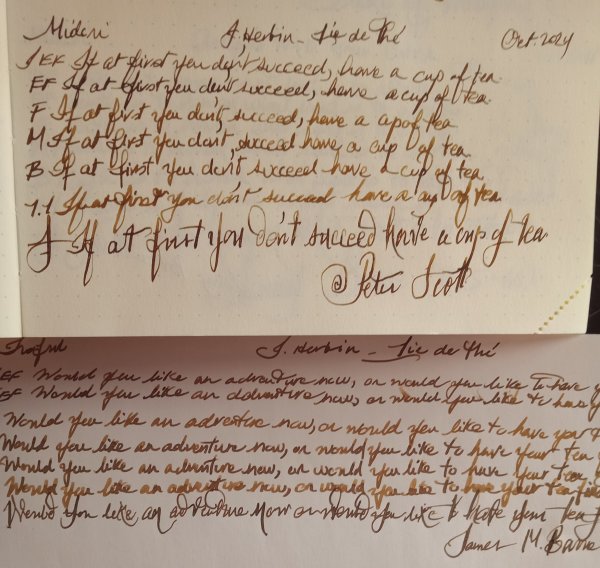 Midori J Herbin - Lie de Thé Oct. 2024
1 EF If at first you don't succeed, have a cup of tea
EF If at first you don't succeed, have a cup of tea
F If at first you don't, succeed, have a cup of tea
M If at first you don't, succeed have a cup of tea
B If at first you don't succeed have a cup of tea
1.1 If at first you don't succeed have a cup of tea
J If at first you don't succeed have a cup of tea
@ Peter Scott
J. Herbin - Lie de Thé
EF Would you like an adventure now, or would you like to have y
EF Would you like an adventure now, or would you like to have you
Would you like an adventure now, or would you like to have your
Would you like an adventure now, or would you like to have your tea
Would you like an adventure now, or would you like to have your tea
Would you like an adventure now, or would you like to have your tea
Would you like an adventure now or would you like to have your tea
James M. Barrie